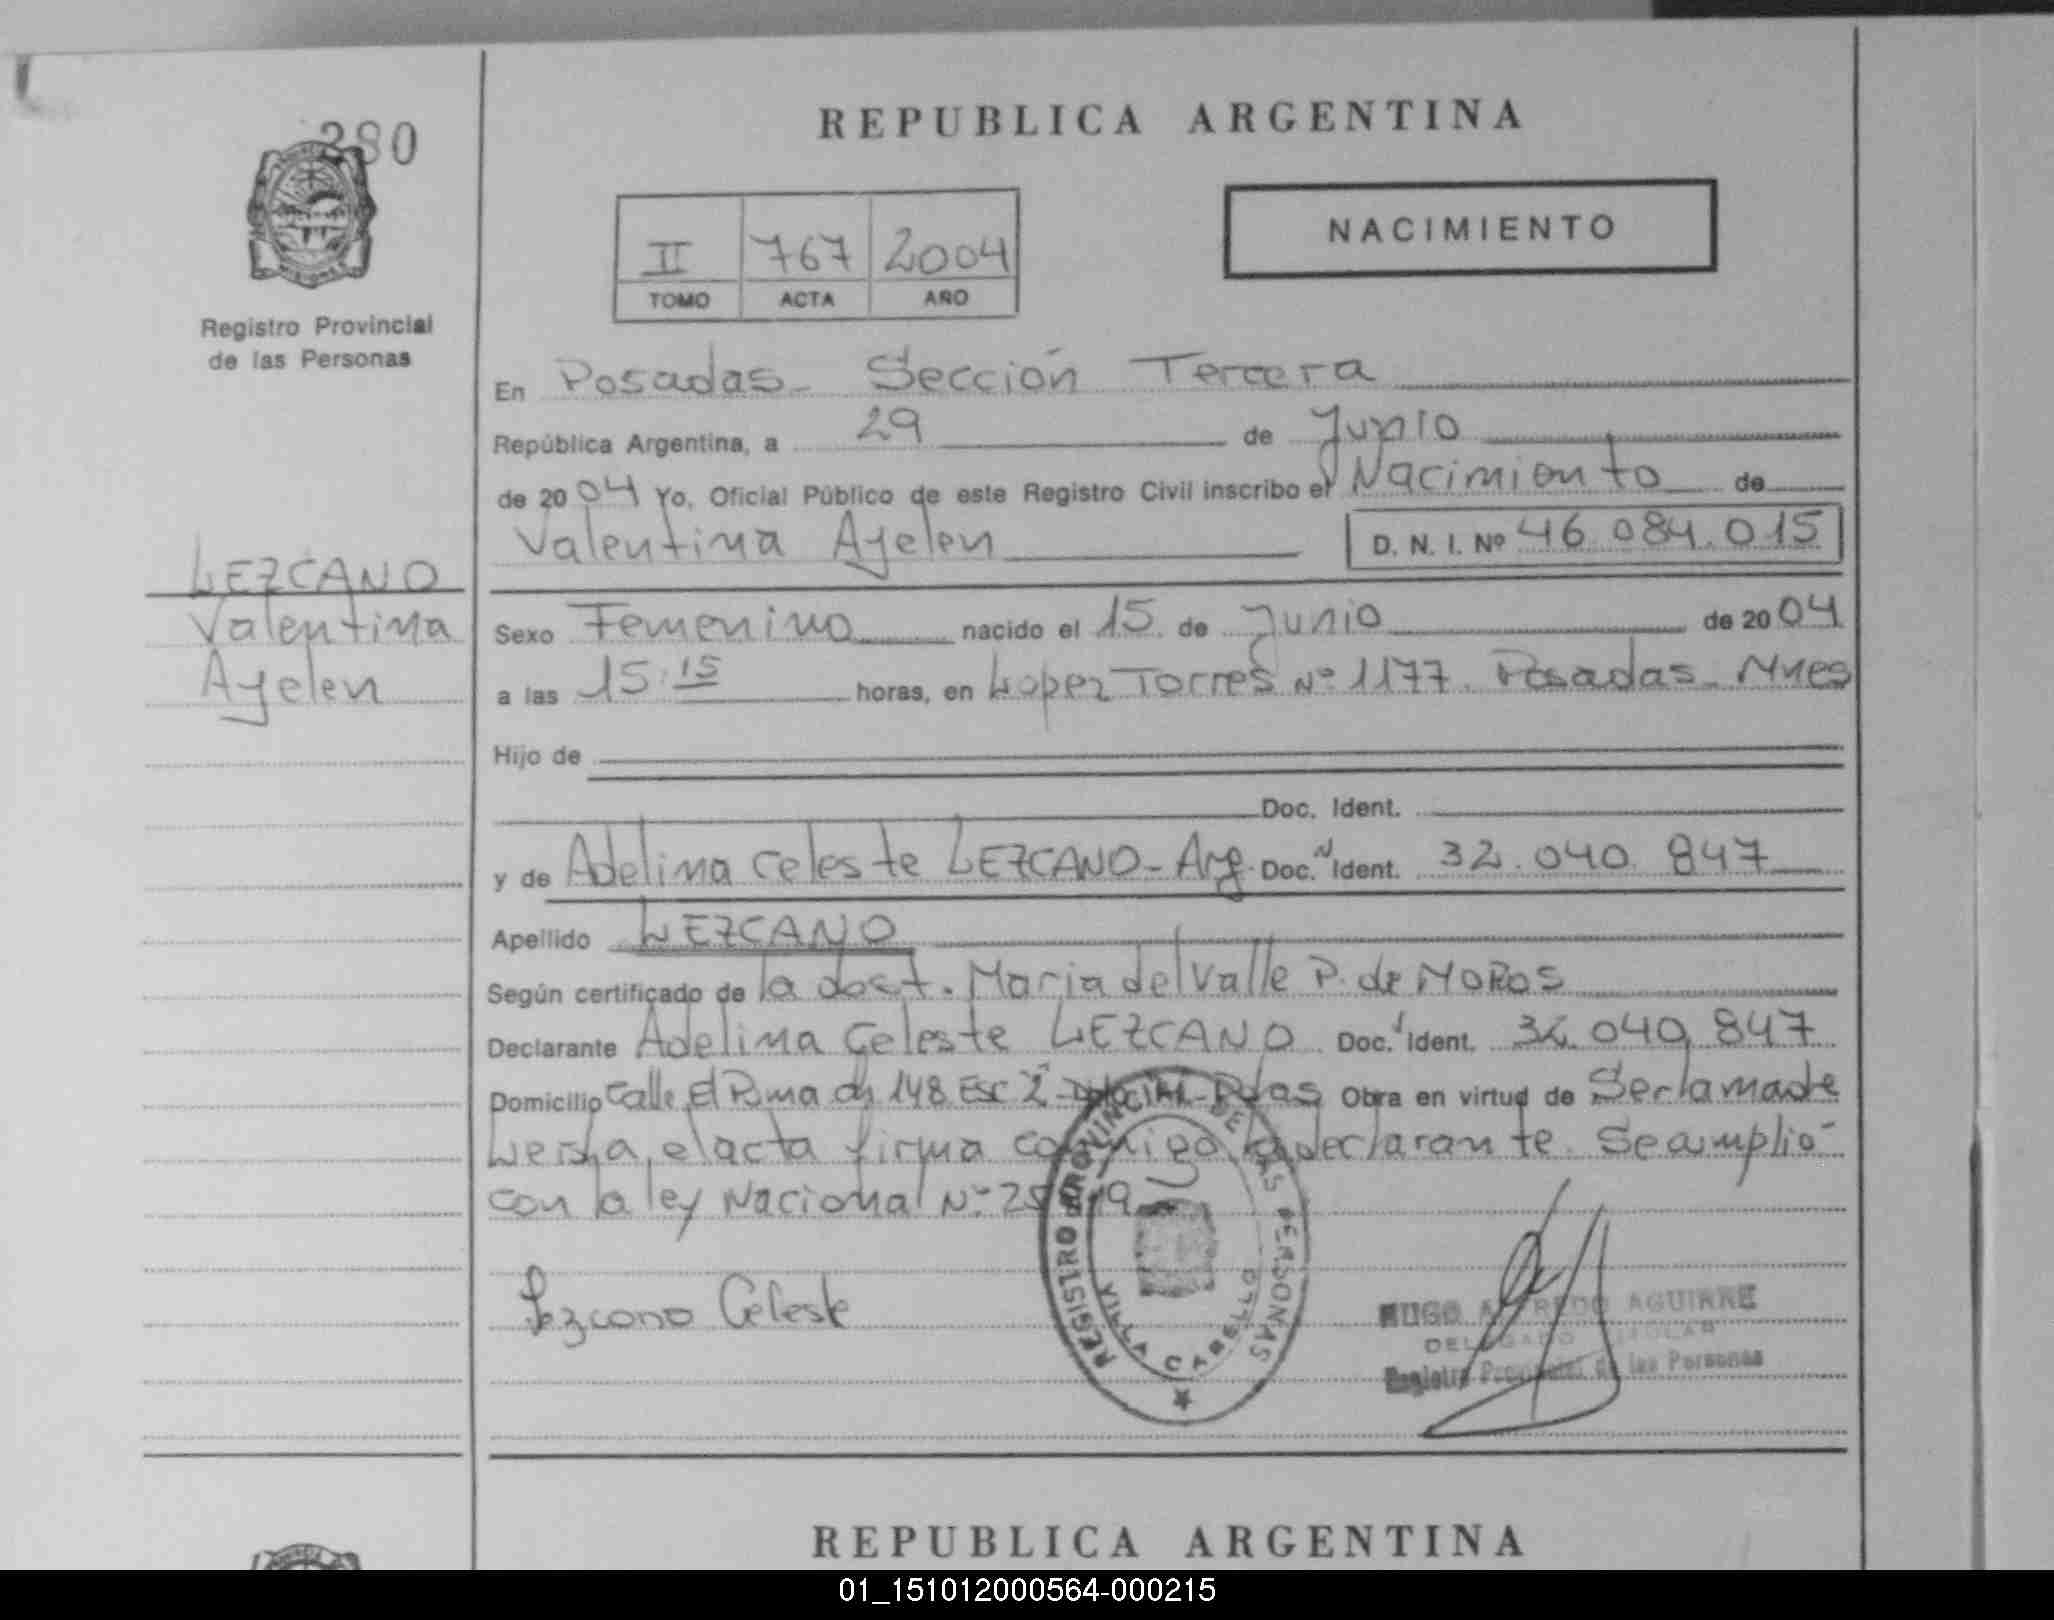 280
REPUBLICA ARGENTINA
NACIMIENTO
II 767 2004
TOMO ACTA AÑO
Registro Provincial
de las Personas
En Posadas - Sección Tercera
República Argentina, a 29 de Junio
de 2004 Yo, Oficial Público de este Registro Civil inscribo el Nacimiento de
Valentina Ayelen D. N. I. Nº 46.084.015
LEZCANO
Valentina
Ayelen
Sexo Femenino nacido el 15 de Junio de 2004
a las 15:15 horas, en Lopez Torres Nº 1177. Posadas - Mnes
Hijo de
Doc. Ident.
y de Adelina Celeste LEZCANO - Arg. Doc. Ident. 32.040.847
Apellido LEZCANO
Según certificado de la doct. Maria del Valle P. de MOROS
Declarante Adelina Celeste LEZCANO Doc. Ident. 32.040.847
Domicilio Calle El Puma ch 148 Esc 2 - Pdas Obra en virtud de Ser la madre
Leida el acta firma conmigo la declarante. Se amplió
con la ley Nacional Nº
Lezcano Celeste
REGISTRO PROVINCIAL DE LAS PERSONAS
VILLA CABELLO
HUGO ALFREDO AGUIRRE
DELEGADO TITULAR
Registro Provincial de las Personas
REPUBLICA ARGENTINA
01_151012000564-000215